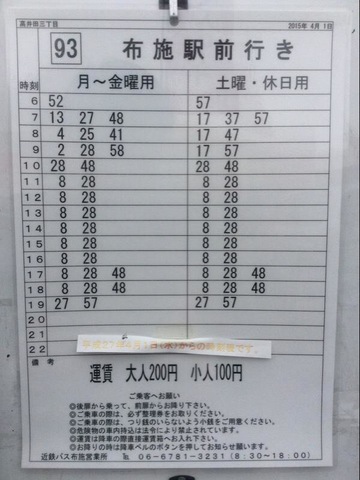 高井田三丁目 2015年 4月 1日
93 布施駅前行き
時刻 月～金曜用 土曜・休日用
6 52 57
7 13 27 48 17 37 57
8 4 25 41 17 47
9 2 28 58 17 57
10 28 48 28 48
11 8 28 8 28
12 8 28 8 28
13 8 28 8 28
14 8 28 8 28
15 8 28 8 28
16 8 28 8 28
17 8 28 48 8 28 48
18 8 28 48 8 28 48
19 27 57 27 57
20
21
22
平成27年4月1日(水)からの時刻表です。
備考
運賃 大人200円 小人100円
ご乗客へお願い
◎後扉から乗って、前扉からお降り下さい。
◎ご乗車の際は、必ず整理券をお取りください。
◎ご乗車の際は、つり銭のいらないよう小銭をご用意ください。
◎危険物の車内持込は法令により禁止されています。
◎運賃は降車の際直接運賃箱へお入れ下さい。
◎お降りの時は降車ベルのボタンを押してお知らせ願います。
近鉄バス布施営業所 TEL 06-6781-3231(8:30～18:00)